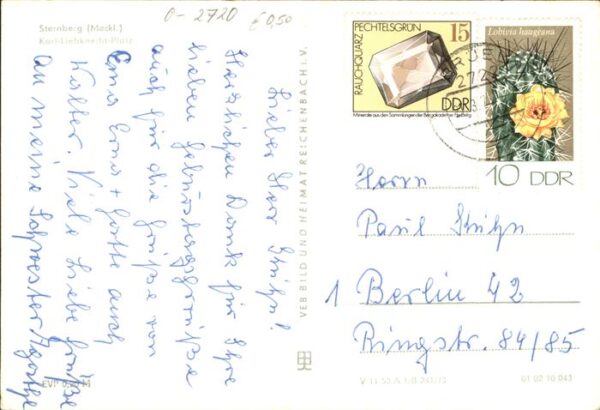 Sternberg (Meckl.)
Karl-Liebknecht-Platz
0-2720
€ 0,50
Lieber Herr
Herzlichen Dank für Ihre
lieben Geburtstagsgrüße
auch für die Grüße von
Erna + Lotte auch
Walter. Viele liebe Grüße
an meine Schwester Agathe
EVP 0,20 M
VEB BILD UND HEIMAT REICHENBACH i. V.
RAUCHQUARZ
PECHTELSGRÜN
15
DDR
Minerale aus den Sammlungen der Bergakademie Freiberg
Lobivia haageana
10 DDR
272
Herrn
Paul
1 Berlin 42
Ringstr. 84/85
01 02 10 043